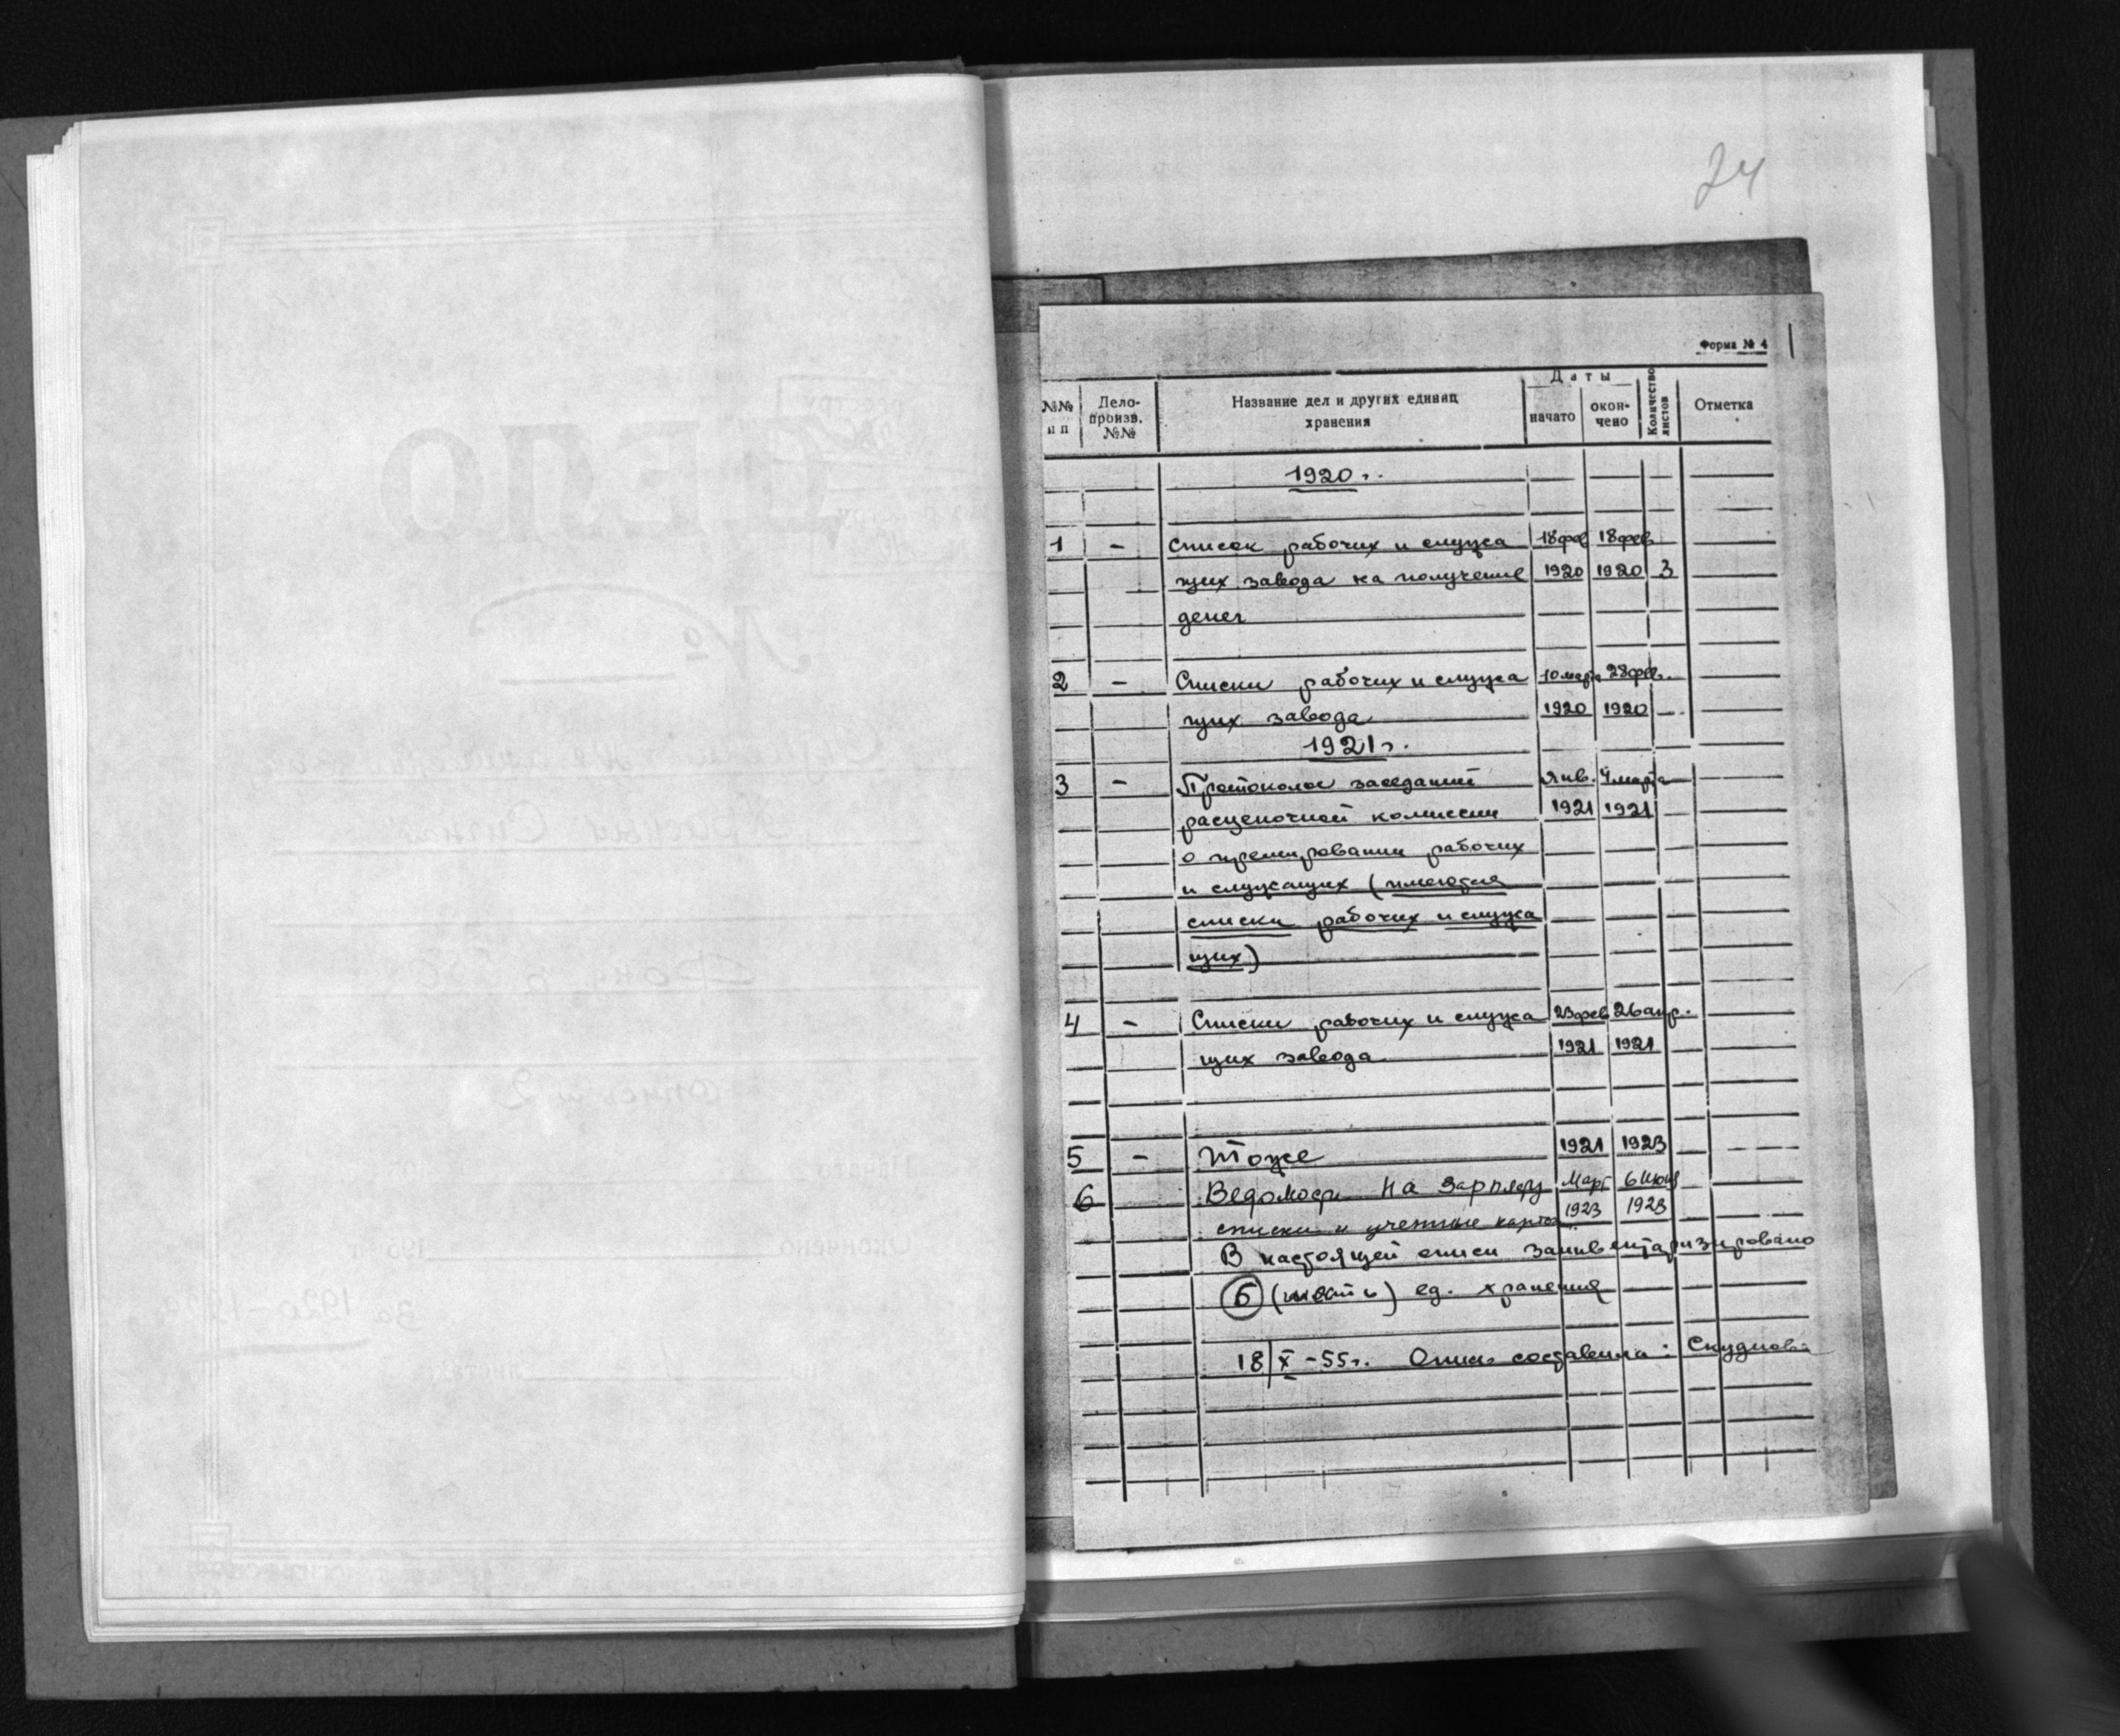 24
Форма № 4
№№ п п Дело- произв. №№ Название дел и других единиц хранения Даты начато окон- чено Количество листов Отметка
1920 г.
1 – Список рабочих и служа 18 фев 18 фев
щих завода на получение 1920 1920 3
денег
2 – Списки рабочих и служа 10 марта 28 фев.
щих завода 1920 1920
1921 г.
3 – Протоколы заседаний янв. 4 марта
расценочной комиссии 1921 1921
о премировании рабочих
и служащих (имеются
списки рабочих и служа
щих)
4 – Списки рабочих и служа 23 фев 26 апр.
щих завода 1921 1921
5 – Тоже 1921 1923
6 Ведомости на зарплату Март 6 июня
списки и учетные карточ. 1923 1923
В настоящей описи заинвентаризировано
6 (шесть) ед. хранения
18/X – 55 г. Опись составила: Скуднова